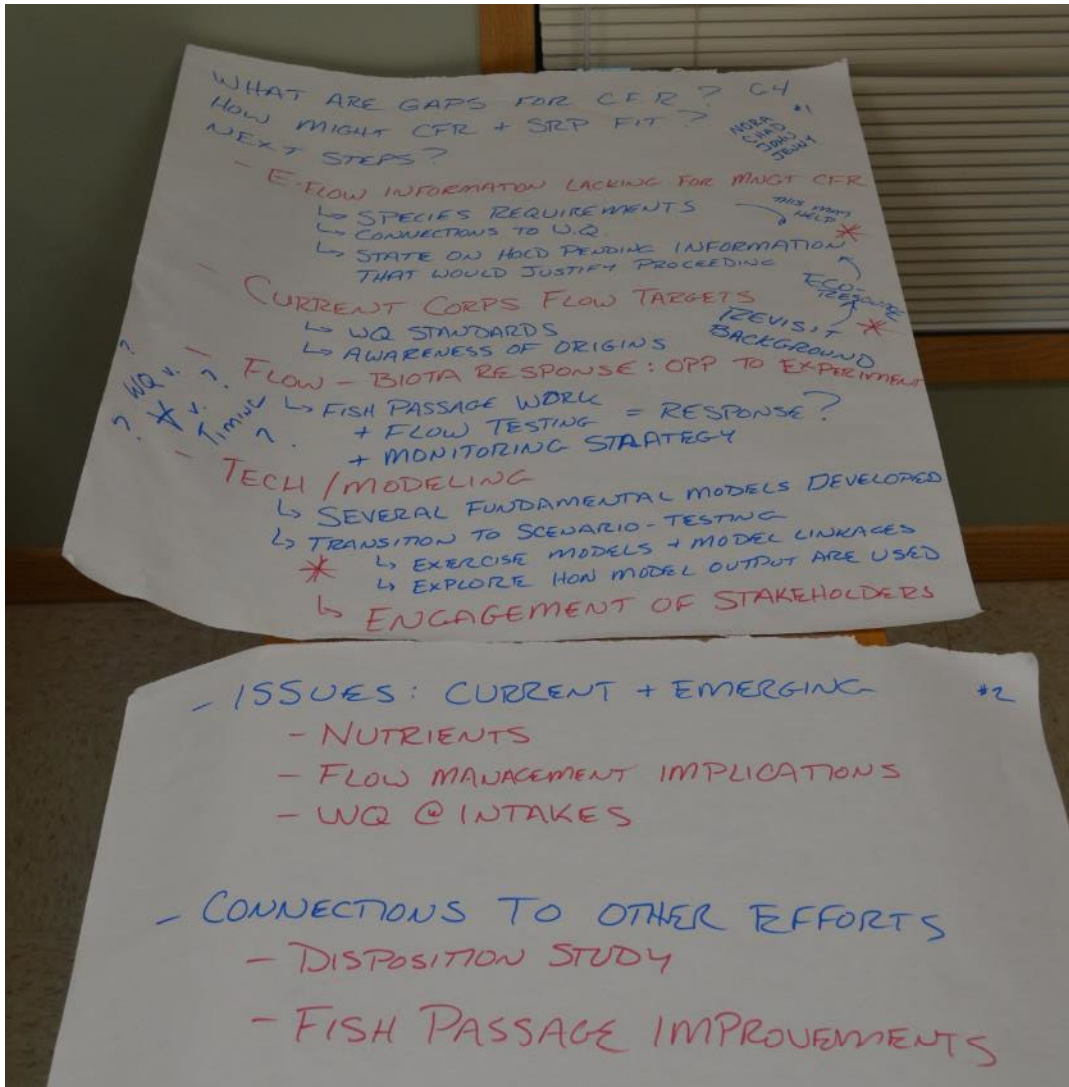 WHAT ARE GAPS FOR CFR? G4
HOW MIGHT CFR + SRP FIT? #1
NEXT STEPS?
NORA
CHAD
JOHN
JENNY
- E-FLOW INFORMATION LACKING FOR MNGT CFR
↳ SPECIES REQUIREMENTS
↳ CONNECTIONS TO W.Q.
↳ STATE ON HOLD PENDING INFORMATION
THAT WOULD JUSTIFY PROCEEDING
THIS MAY
HELP *
- CURRENT CORPS FLOW TARGETS
↳ WQ STANDARDS
↳ AWARENESS OF ORIGINS
ECO-
RESPONSE
*
REVISIT
BACKGROUND
- FLOW - BIOTA RESPONSE: OPP TO EXPERIMENT
↳ FISH PASSAGE WORK
+ FLOW TESTING = RESPONSE?
+ MONITORING STRATEGY
? WQ v. ?
? v.
TIMING ?
- TECH/MODELING
↳ SEVERAL FUNDAMENTAL MODELS DEVELOPED
↳ TRANSITION TO SCENARIO-TESTING
* ↳ EXERCISE MODELS + MODEL LINKAGES
↳ EXPLORE HOW MODEL OUTPUT ARE USED
↳ ENGAGEMENT OF STAKEHOLDERS
- ISSUES: CURRENT + EMERGING #2
- NUTRIENTS
- FLOW MANAGEMENT IMPLICATIONS
- WQ @ INTAKES
- CONNECTIONS TO OTHER EFFORTS
- DISPOSITION STUDY
- FISH PASSAGE IMPROVEMENTS